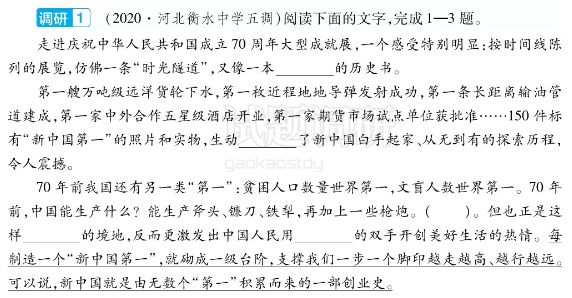 调研1 (2020·河北衡水中学五调)阅读下面的文字,完成1—3题。
走进庆祝中华人民共和国成立70周年大型成就展,一个感受特别明显:按时间线陈
列的展览,仿佛一条“时光隧道”,又像一本________的历史书。
第一艘万吨级远洋货轮下水,第一枚近程地地导弹发射成功,第一条长距离输油管
道建成,第一家中外合作五星级酒店开业,第一家期货市场试点单位获批准……150件标
有“新中国第一”的照片和实物,生动________了新中国白手起家、从无到有的探索历程,
令人震撼。
70年前我国还有另一类“第一”:贫困人口数量世界第一,文盲人数世界第一。70年
前,中国能生产什么?能生产斧头、镰刀、铁犁,再加上一些枪炮。(  )。但也正是这
样________的境地,反而更激发出中国人民用________的双手开创美好生活的热情。每
制造一个“新中国第一”,就砌成一级台阶,支撑我们一步一个脚印越走越高、越行越远。
可以说,新中国就是由无数个“第一”积累而来的一部创业史。
试题调研
gaokaostdy